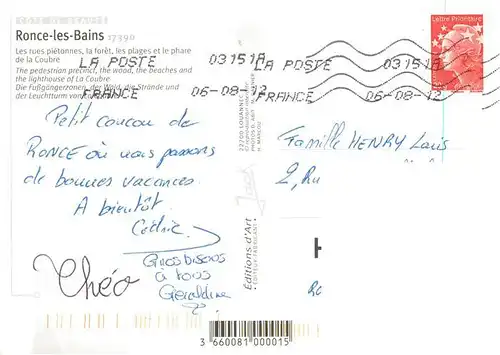 CÔTE DE BEAUTÉ
Ronce-les-Bains 17390
Les rues piétonnes, la forêt, les plages et le phare
de la Coubre
The pedestrian precinct, the wood, the beaches and
the lighthouse of La Coubre
Die Fußgängerzonen, der Wald, die Strände und
der Leuchtturm von
LA POSTE
031510
LA POSTE
031510
FRANCE
06-08-12
FRANCE
06-08-12
Lettre Prioritaire
Petit coucou de
RONCE où nous passons
de bonnes vacances.
A bientôt.
Cédric
Gros bisous
à tous
Géraldine
Théo
22700 LOUANNEC
Éditions d'Art
ÉDITEUR-FABRICANT
Famille HENRY Louis
2, Ru
3 660081 000015